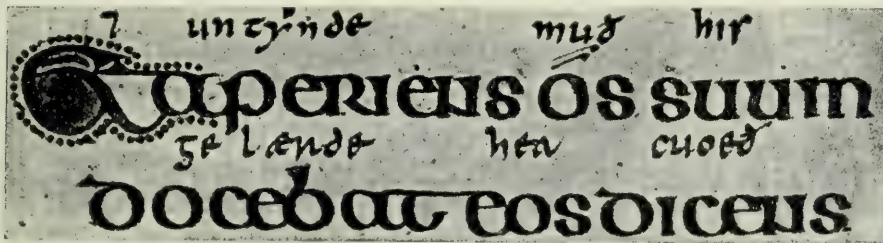 ⁊ untẏnde muð his
Et aperiens os suum
ge lærde hea cuoeð
docebat eos dicens